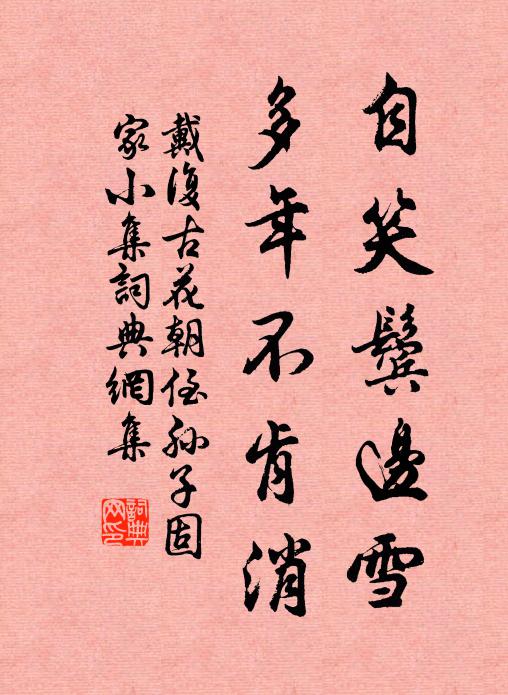 自笑鬢邊雪
多年不肯消
戴復古花朝侄孙子固
家小集詞典網集
詞典
网印